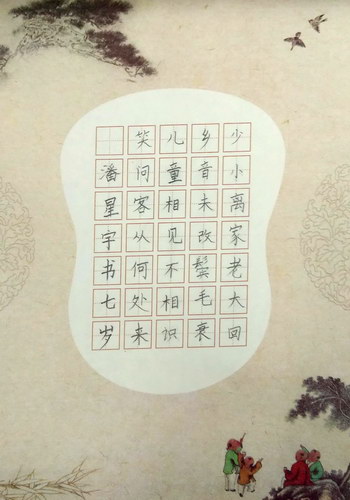 少小离家老大回
乡音未改鬓毛衰
儿童相见不相识
笑问客从何处来
潘星宇书七岁